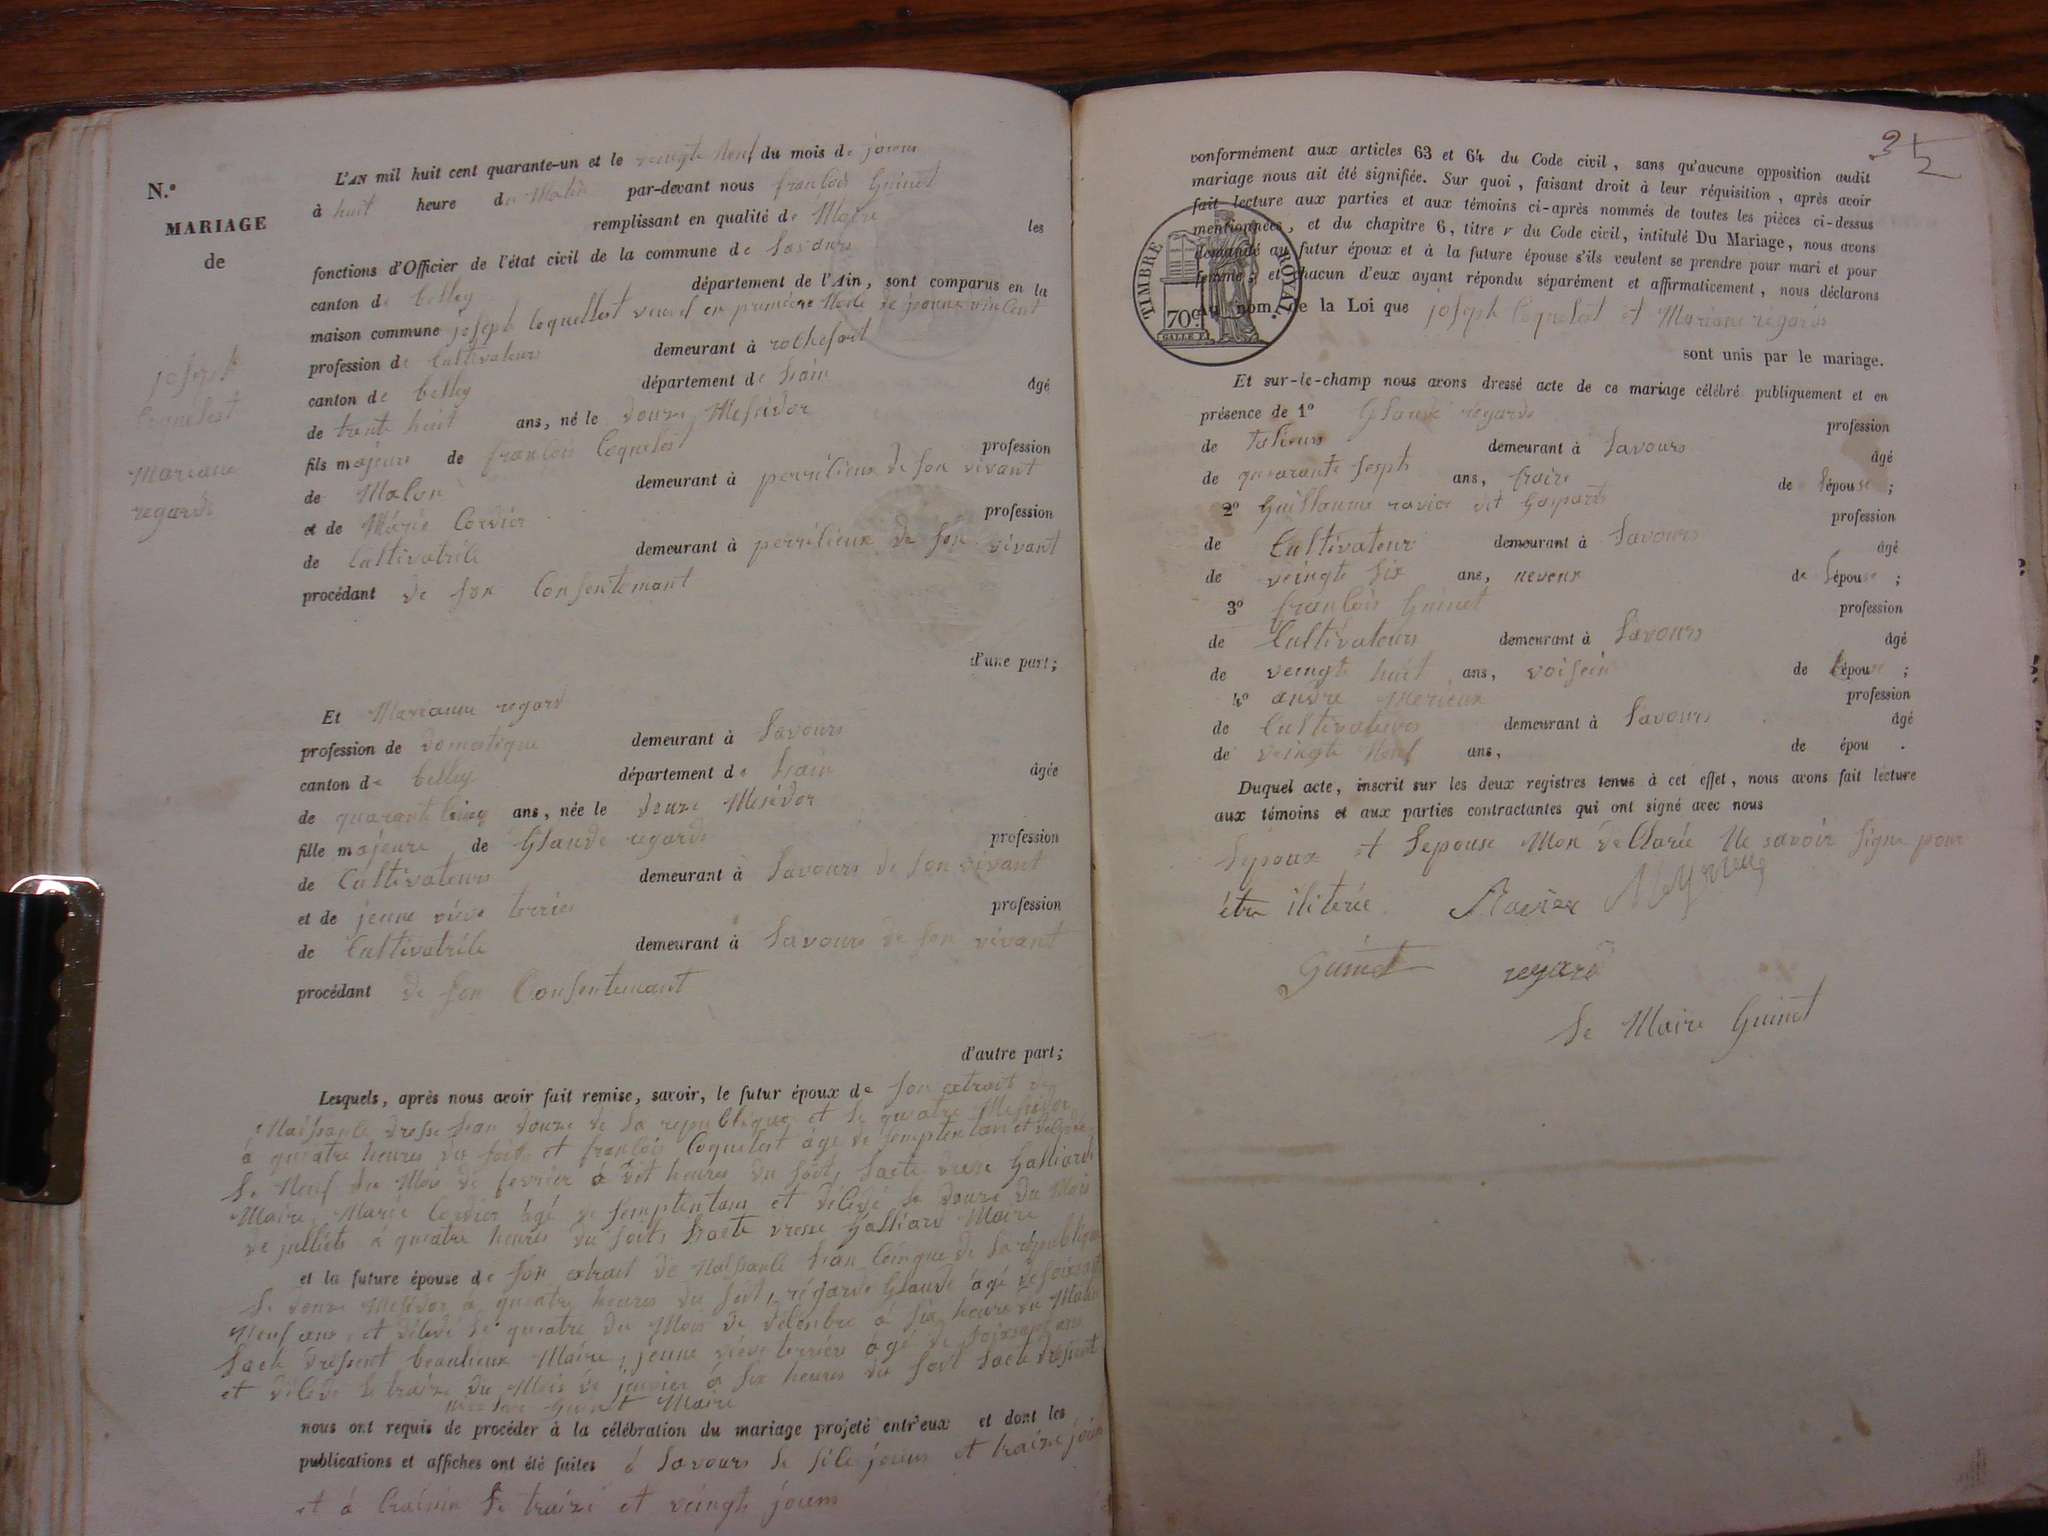 N.º
MARIAGE
de
joseph
Coquelest
Mariane
regards
L'AN mil huit cent quarante-un et le veingte neuf du mois de
à huit heure du Matin par-devant nous franlois Guinet
remplissant en qualité de Maire les
fonctions d'Officier de l'état civil de la commune de Savours
canton de belley département de l'Ain, sont comparus en la
maison commune joseph Coquellest en première de vincent
profession de Cultivateurs demeurant à rochefort
canton de belley département de Lain âgé
de trente huit ans, né le douze Mesidor
fils majeure de franlois Coquelest profession
de Malon demeurant à perrilieux de son vivant
et de Marie Cordier profession
de Cultivatrile demeurant à perrilieux de son vivant
procédant de son Consentemant
d'une part;
Et Marianne regard
profession de domestique demeurant à Savours
canton de belley département de Lain âgée
de quarant Cinq ans, née le douze Mesidor
fille majeure de Glaude regards profession
de Cultivateurs demeurant à Savours de son vivant
et de jeune viève terrier profession
de Cultivatrile demeurant à Savours de son vivant
procédant de son Consentemant
d'autre part;
Lesquels, après nous avoir fait remise, savoir, le futur époux de son extrait de
Naissanle dresse Lan douze de la republique et le quatre Mesidor
à quatre heures du soir et franlois Coquelest âgé de
Le Neuf du Mois de fevrier à heures du soir, Lacte dresse Galliard
Maire, Marie Cordier âgé de et délédé le douze du Mois
de julliets à quatre heures du soirs Lacte dresse Galliard Maire
et la future épouse de son extrait de Naissanle Lan Cinque de la republique
Le douze Mesidor à quatre heures du soir, regards Glaude âgé de
Neuf ans, et délédé le quatre du Mois de délenbre à six heure du Matin
Lacte dressent beaulieux Maire, jeune viève terrier âgé de
et délédé le traize du Mois de janvier à six heures du soir Lacte dressent
Guinet Maire
nous ont requis de procéder à la célébration du mariage projeté entr'eux et dont les
publications et affiches ont été faites à Savours le et traize
et à le traize et veingts
35
conformément aux articles 63 et 64 du Code civil, sans qu'aucune opposition audit
mariage nous ait été signifiée. Sur quoi, faisant droit à leur réquisition, après avoir
fait lecture aux parties et aux témoins ci-après nommés de toutes les pièces ci-dessus
mentionnées, et du chapitre 6, titre v du Code civil, intitulé Du Mariage, nous avons
demandé au futur époux et à la future épouse s'ils veulent se prendre pour mari et pour
femme; et chacun d'eux ayant répondu séparément et affirmativement, nous déclarons
au nom de la Loi que joseph Coquelest et Mariane regards
TIMBRE ROYAL.
70c
sont unis par le mariage.
Et sur-le-champ nous avons dressé acte de ce mariage célébré publiquement et en
présence de 1º Glaude regards profession
de demeurant à Savours âgé
de quarante ans, fraire de Lépouse;
2º Guillaume ravier dit Gaspard profession
de Cultivateur demeurant à Savours âgé
de veingte six ans, neveux de Lépouse;
3º franlois Guinet profession
de Cultivateurs demeurant à Savours âgé
de veingt huit ans, voisein de Lépouse;
4º andre Merieux profession
de Cultivateurs demeurant à Savours âgé
de veingte Neuf ans, de épou .
Duquel acte, inscrit sur les deux registres tenus à cet effet, nous avons fait lecture
aux témoins et aux parties contractantes qui ont signé avec nous
Lépoux et Lepouse Mon déClarée Ne savoir Signe pour
être iliterée Ravier
Guinet regard
Le Maire Guinet